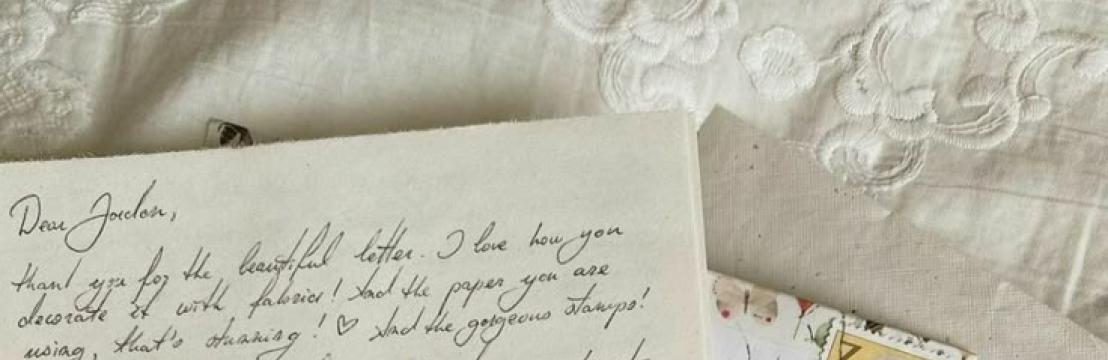 Dear Jordan,
thank you for the beautiful letter. I love how you
decorate it with fabrics! And the paper you are
using, that's stunning! ♡ And the gorgeous stamps!